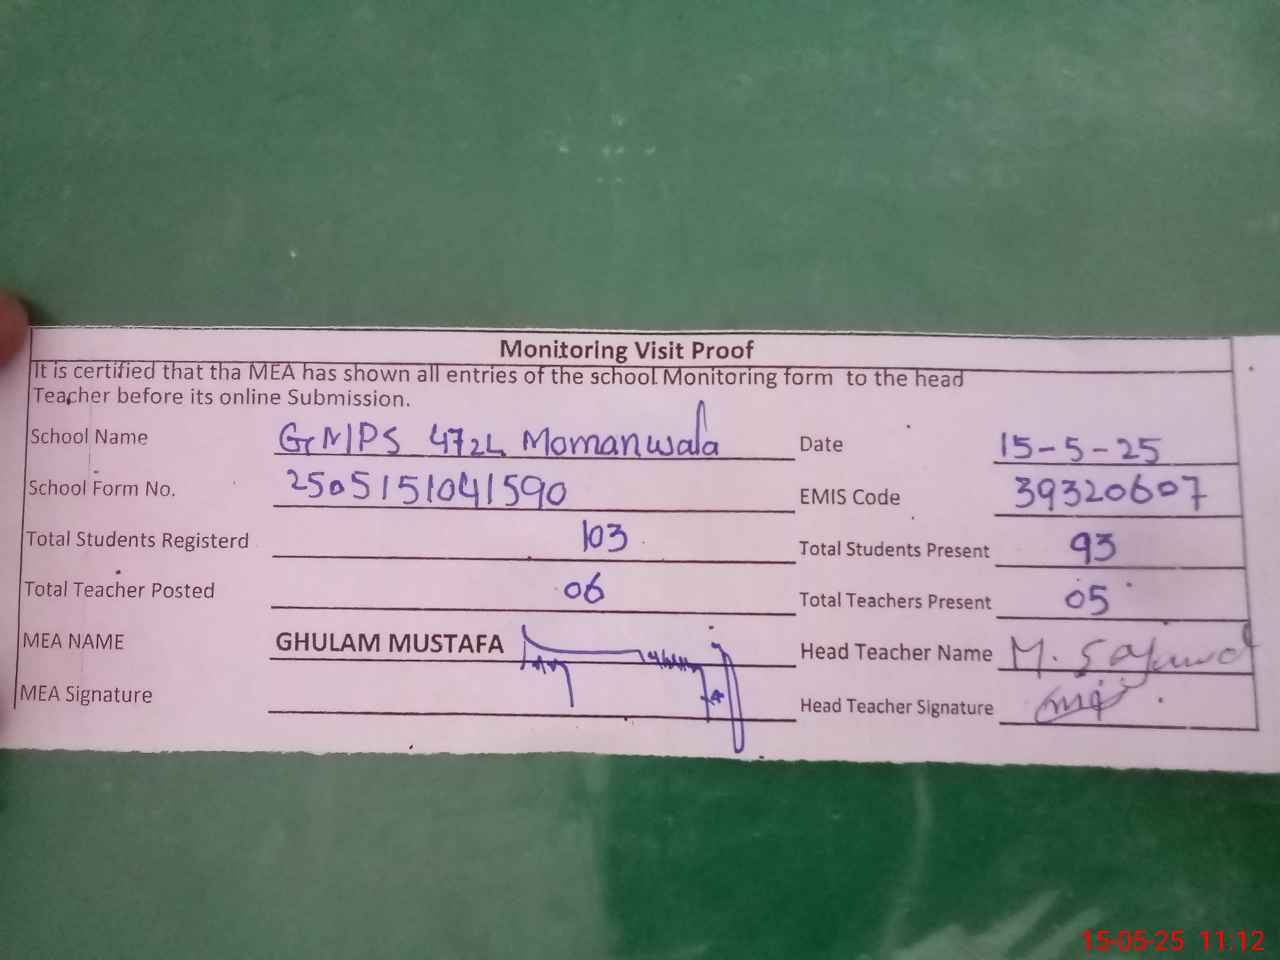 Monitoring Visit Proof
It is certified that tha MEA has shown all entries of the school Monitoring form to the head
Teacher before its online Submission.
School Name GMPS 472L Momanwala Date 15-5-25
School Form No. 2505151041590 EMIS Code 39320607
Total Students Registerd 103 Total Students Present 93
Total Teacher Posted 06 Total Teachers Present 05
MEA NAME GHULAM MUSTAFA Head Teacher Name M.
MEA Signature Head Teacher Signature
15-05-25 11:12